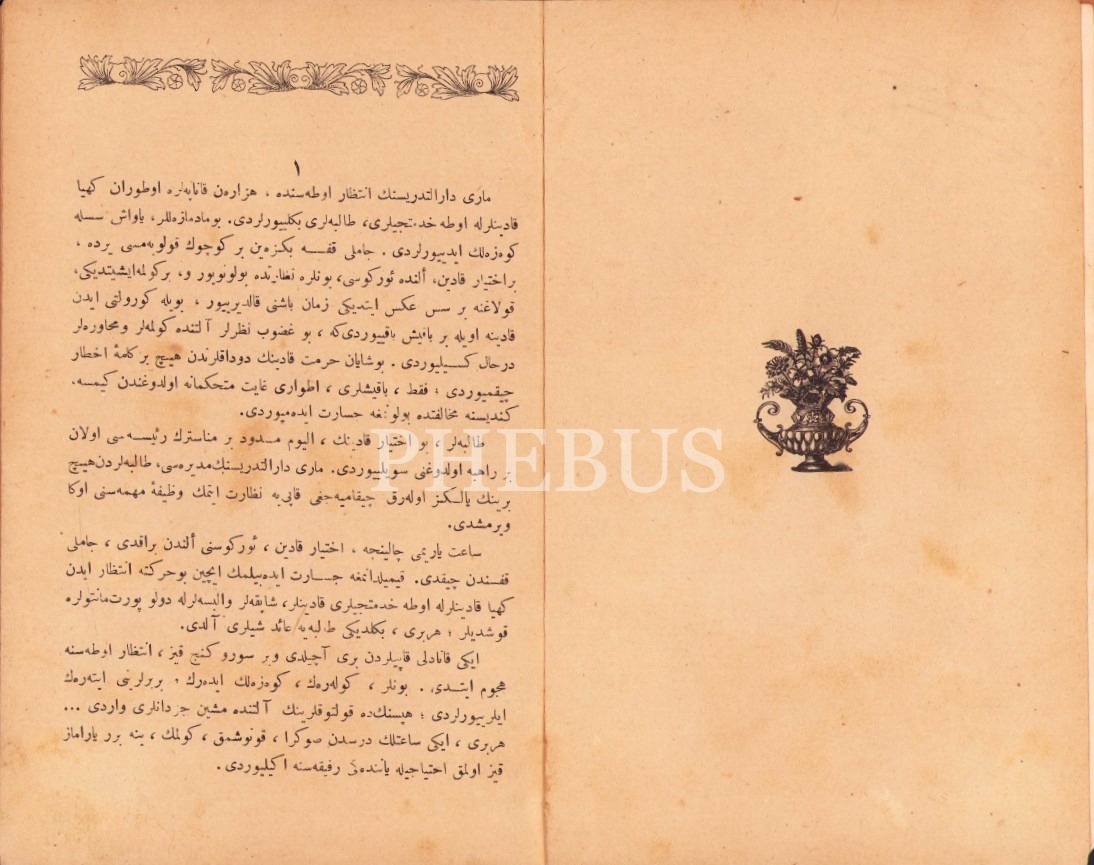 ١
ماری دارالتدریسنك انتظار اوطه‌سنده ، هزارەن قانابه‌لره اوطوران کهیا
قادینلرله اوطه خدمتجیلری، طالبه‌لری بکلییورلردی. بومادمازه‌للر، یاواش سسله
کوەزەلك ایدییورلردی . جاملی قفسه بکزەین بر کوچوك قولوبه‌مسی یرده ،
براختیار قادین، ألنده ئورکوسی، بونلره نظارتده بولونویور و، برکولمه‌ایشیتدیکی،
قولاغنه بر سس عکس ایتدیکی زمان باشنی قالدیرییور ، بویله کورولتی ایدن
قادینه اویله بر باقیش باقییوردی‌که ، بو غضوب نظرلر آلتنده کولمه‌لر ومحاوره‌لر
درحال کسیلیوردی . بوشایان حرمت قادینك دوداقلرندن هیچ برکلمهٔ اخطار
چیقمیوردی ؛ فقط ، باقیشلری ، اطواری غایت متحکمانه اولدوغندن کیمسه.
کندیسنه مخالفتده بولونمغه جسارت ایده‌میوردی.
طالبه‌لر ، بو اختیار قادینك ، الیوم مسدود بر مناسترك رئیسه‌سی اولان
بر راهبه اولدوغنی سویلییوردی. ماری دارالتدریسنك‌مدیره‌سی، طالبه‌لردن‌هیچ
برینك یالکز اوله‌رق چیقامیه‌جغی قاپی‌یه نظارت ایتمك وظیفهٔ مهمه‌سنی اوکا
ویرمشدی.
ساعت یاریمی چالینجه ، اختیار قادین ، ئورکوسنی ألندن براقدی ، جاملی
قفسندن چیقدی. قیمیلدانمغه جسارت ایده‌بیلمك ایچین بوحرکته انتظار ایدن
کهیا قادینلرله اوطه خدمتجیلری قادینلر، شاپقه‌لر والبسه‌لرله دولو پورت‌مانتولره
قوشدیلر ؛ هربری ، بکلدیکی طالبه‌یه عائد شیلری آلدی.
ایکی قانادلی قاپیلردن بری آچیلدی وبر سورو کنج قیز ، انتظار اوطه‌سنه
هجوم ایتدی . بونلر ، کوله‌رەك ، کوەزەلك ایدەرك ، بربرلرینی ایته‌رەك
ایلریبورلردی ؛ هپسنك‌ده قولتوقلرینك آلتنده مشین جزدانلری واردی ...
هربری ، ایکی ساعتلك درسدن صوکرا ، قونوشمق ، کولمك ، ینه برر یاراماز
قیز اولمق احتیاجیله یاننده‌کی رفیقه‌سنه اکیلیوردی .
PHEBUS